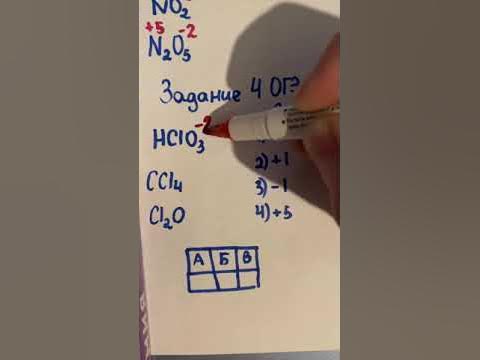 NO₂
+5 -2
N₂O₅
Задание 4 ОГ?
-2
HClO₃
CCl₄ 2) +1
3) -1
Cl₂O 4) +5
А Б В